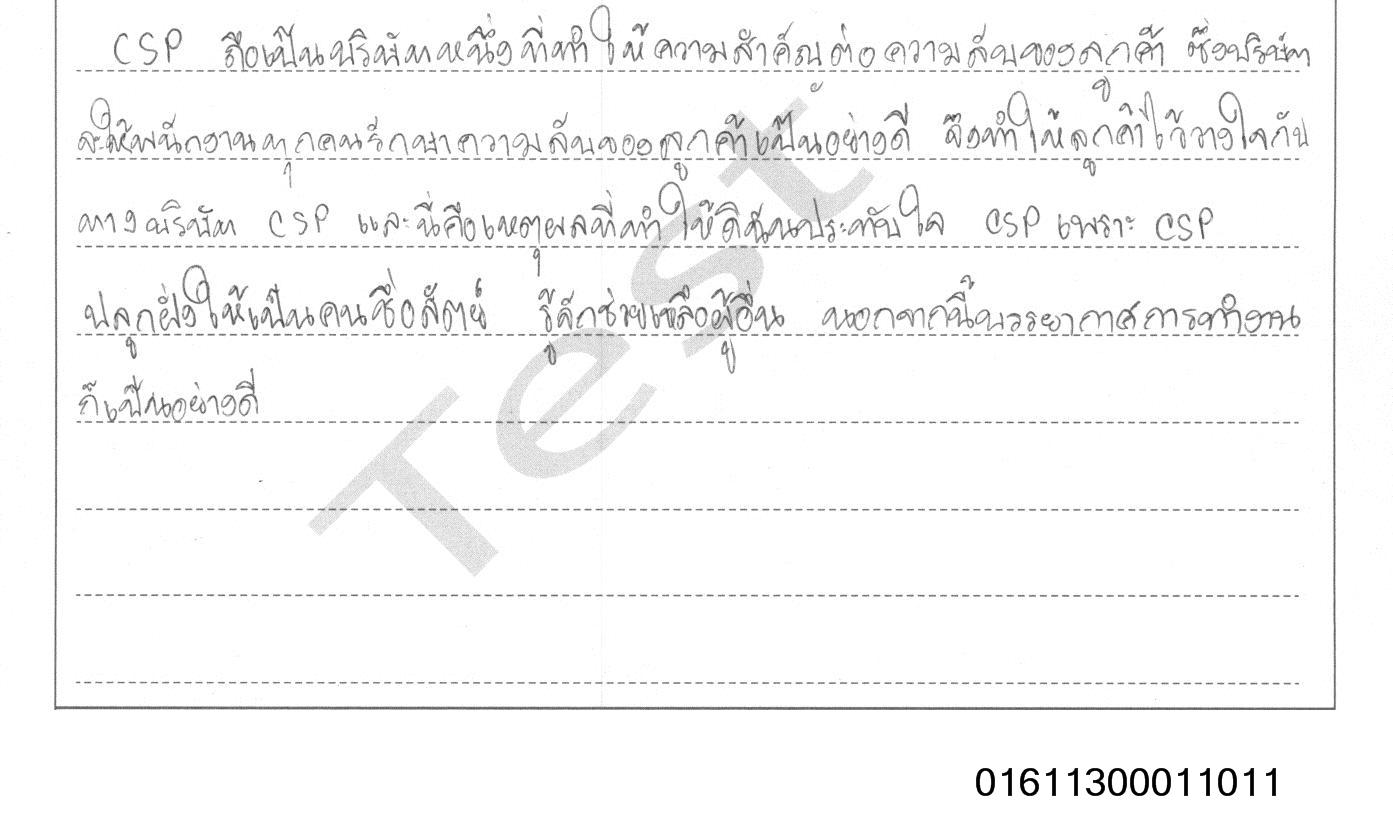 CSP ถือเป็นบริษัทหนึ่งที่ทำให้ความสำคัญต่อความลับของลูกค้า ซึ่งบริษัท
จะให้พนักงานทุกคนรักษาความลับของลูกค้าเป็นอย่างดี จึงทำให้ลูกค้าไว้วางใจกับ
ทางบริษัท CSP และนี่คือเหตุผลที่ทำให้ดิฉันประทับใจ CSP เพราะ CSP
ปลูกฝั่งให้เป็นคนซื่อสัตย์ รู้จักช่วยเหลือผู้อื่น นอกจากนี้บรรยากาศการทำงาน
ก็เป็นอย่างดี
Test
01611300011011